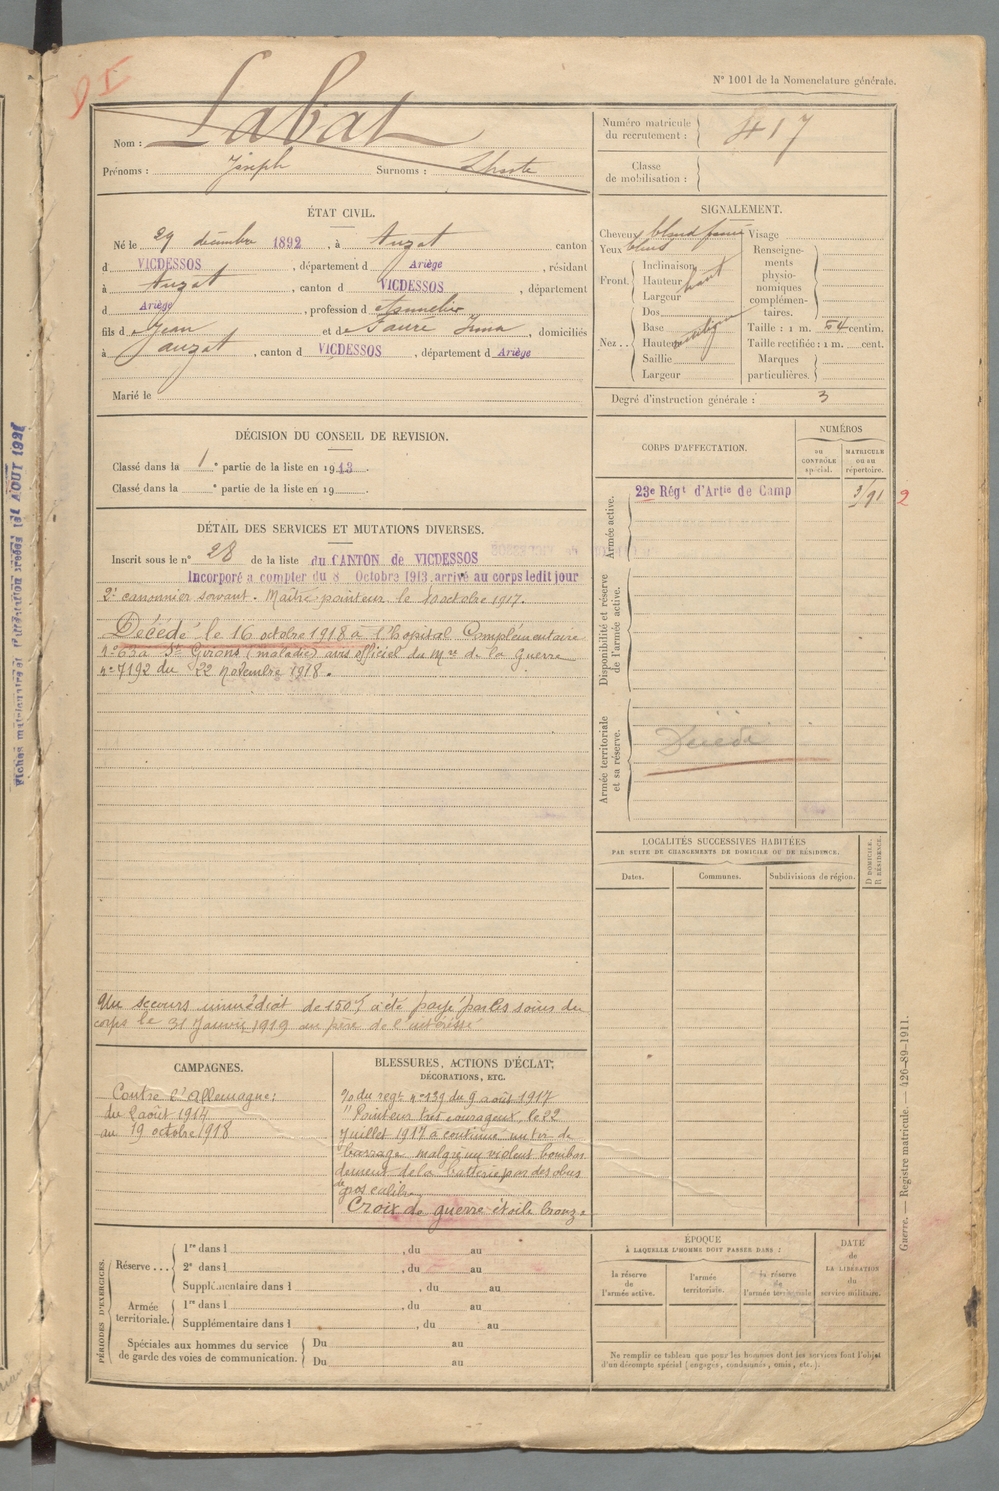 DI
N° 1001 de la Nomenclature générale.
Nom : Labat
Prénoms : Joseph Surnoms :
Numéro matricule du recrutement : 417
Classe de mobilisation :
ÉTAT CIVIL.
Né le 29 décembre 1892, à Auzat canton
d VICDESSOS, département d Ariège, résidant
à Auzat, canton d VICDESSOS, département
d Ariège, profession d
fils d Jean et de Faure Irma, domiciliés
à auzat, canton d VICDESSOS, département d Ariège
Marié le
SIGNALEMENT.
Cheveux blond foncé
Yeux bleus
Front. Inclinaison
Hauteur haut
Largeur
Nez.. Dos
Base
Hauteur
Saillie
Largeur
Visage
Renseignements physionomiques complémentaires.
Taille : 1 m. 54 centim.
Taille rectifiée : 1 m. cent.
Marques particulières.
Degré d'instruction générale : 3
DÉCISION DU CONSEIL DE REVISION.
Classé dans la 1e partie de la liste en 1913.
Classé dans la e partie de la liste en 19
DÉTAIL DES SERVICES ET MUTATIONS DIVERSES.
Inscrit sous le n° 28 de la liste du CANTON de VICDESSOS
Incorporé à compter du 8 Octobre 1913, arrivé au corps ledit jour
2e canonnier servant. Maître pointeur le 10 octobre 1917.
Décédé le 16 octobre 1918 à l'hopital Complémentaire
n° 63 à St Girons (maladie) avis officiel du Mre de la Guerre
n° 7192 du 22 Novembre 1918.
Un secours immédiat de 150f a été payé par les soins du
corps le 31 Janvier 1919 au père de l'intéressé
CORPS D'AFFECTATION.
NUMÉROS
DU CONTRÔLE spécial.
MATRICULE OU AU répertoire.
Armée active.
23e Régt d'Artie de Camp
2
Disponibilité et réserve de l'armée active.
Armée territoriale et sa réserve.
Décédé
LOCALITÉS SUCCESSIVES HABITÉES
PAR SUITE DE CHANGEMENTS DE DOMICILE OU DE RÉSIDENCE.
Dates.
Communes.
Subdivisions de région.
D DOMICILE. R RÉSIDENCE.
CAMPAGNES.
Contre l'Allemagne :
du 2 août 1914
au 19 octobre 1918
BLESSURES, ACTIONS D'ÉCLAT,
DÉCORATIONS, ETC.
%du regt n° 139 du 9 août 1917
"Pointeur très courageux, le 22
Juillet 1917 a continué un tir de
barrage malgré un violent bombar
dement de la batterie par des obus
de gros calibre
Croix de guerre étoile bronze
PÉRIODES D'EXERCICES.
Réserve... 1re dans l , du au
2e dans l , du au
Supplémentaire dans l , du au
Armée territoriale. 1re dans l , du au
Supplémentaire dans l , du au
Spéciales aux hommes du service de garde des voies de communication. Du au
Du au
ÉPOQUE
À LAQUELLE L'HOMME DOIT PASSER DANS :
la réserve de l'armée active.
l'armée territoriale.
la réserve de l'armée territoriale
DATE de LA LIBÉRATION du service militaire.
Ne remplir ce tableau que pour les hommes dont les services font l'objet
d'un décompte spécial (engagés, condamnés, omis, etc.).
Guerre. — Registre matricule. — 426-89-1911.